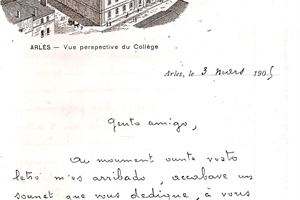 ARLES — Vue perspective du Collège
Arles, le 3 mars 1905
Gento amigo,
Au moument ounte vosto
letro m'es arribado, acabave un
sounet que vous dedique, à vous